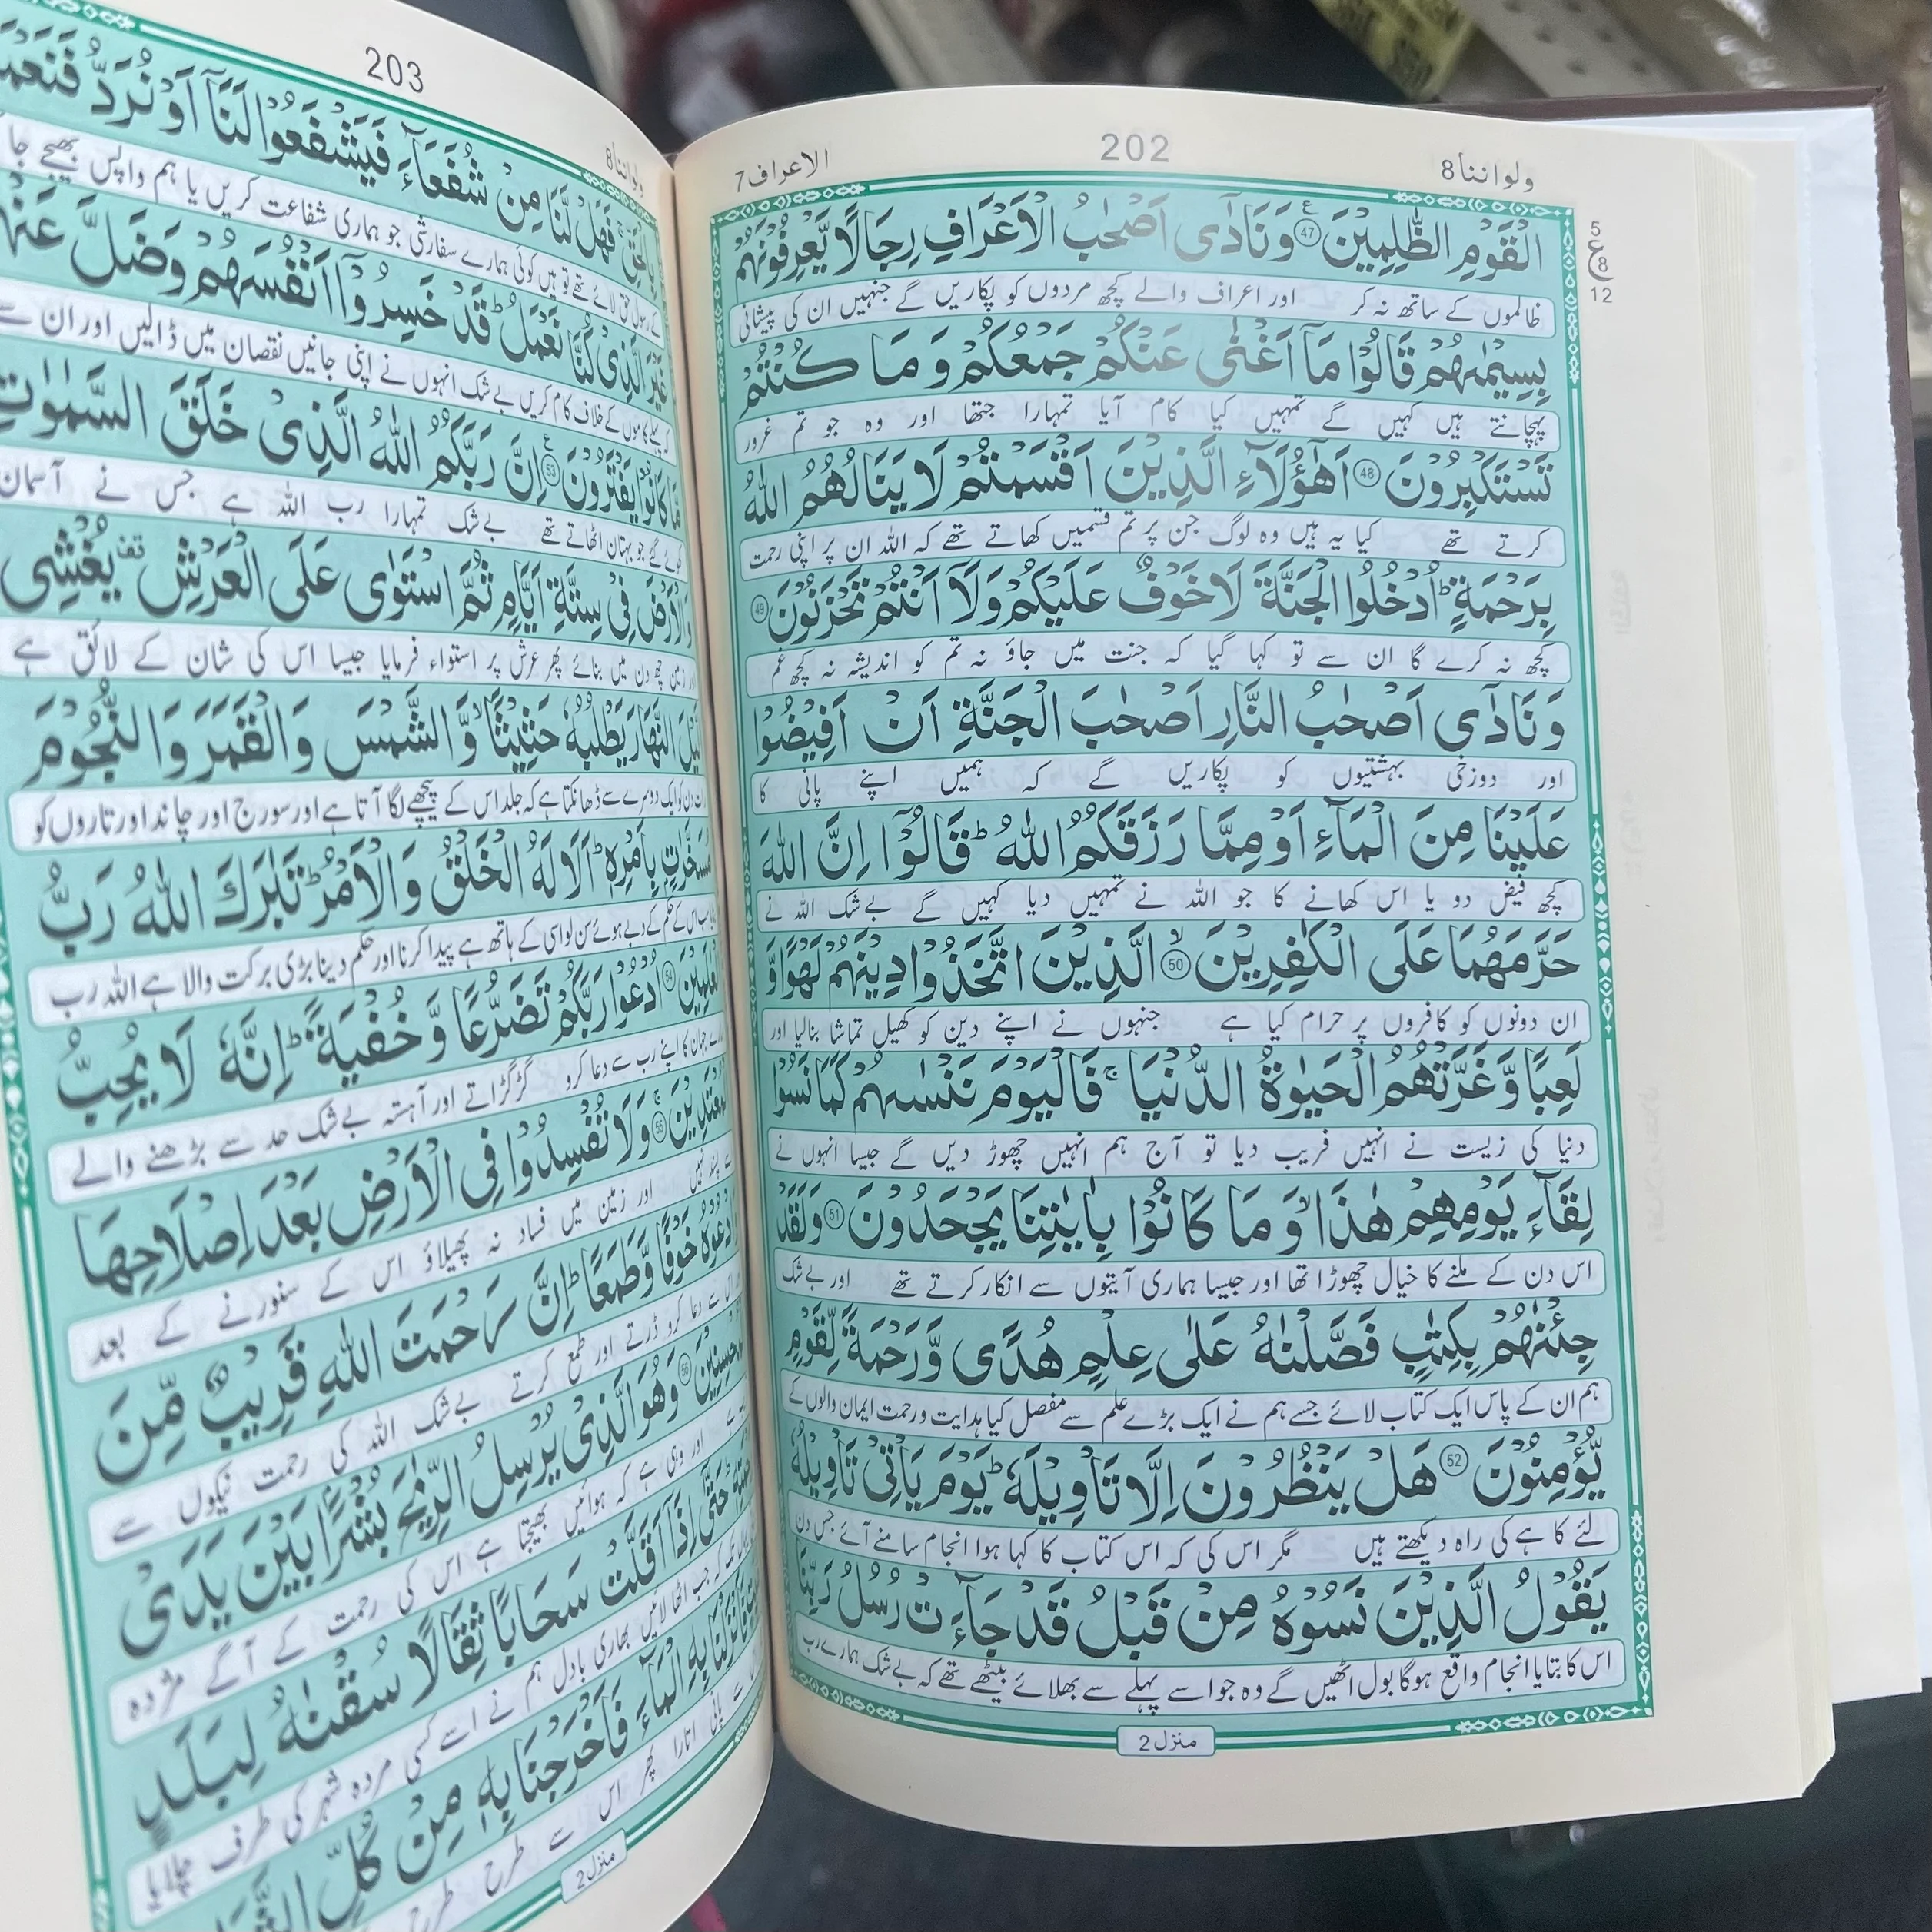 ولواننا 8
202
الاعراف 7
5
ع
8
12
الْقَوْمِ الظّٰلِمِيْنَ ﴿47﴾ ع وَنَادٰۤى اَصْحٰبُ الْاَعْرَافِ رِجَالًا يَّعْرِفُوْنَهُمْ
ظالموں کے ساتھ نہ کر اور اعراف والے کچھ مردوں کو پکاریں گے جنہیں ان کی پیشانی
بِسِيْمٰىهُمْ قَالُوْا مَاۤ اَغْنٰى عَنْكُمْ جَمْعُكُمْ وَ مَا كُنْتُمْ
پہچانتے ہیں کہیں گے تمہیں کیا کام آیا تمہارا جتھا اور وہ جو تم غرور
تَسْتَكْبِرُوْنَ ﴿48﴾ اَهٰۤؤُلَآءِ الَّذِيْنَ اَقْسَمْتُمْ لَا يَنَالُهُمُ اللّٰهُ
کرتے تھے کیا یہ ہیں وہ لوگ جن پر تم قسمیں کھاتے تھے کہ اللہ ان پر اپنی رحمت
بِرَحْمَةٍ ؕ اُدْخُلُوا الْجَنَّةَ لَا خَوْفٌ عَلَيْكُمْ وَلَاۤ اَنْتُمْ تَحْزَنُوْنَ ﴿49﴾
کچھ نہ کرے گا ان سے تو کہا گیا کہ جنت میں جاؤ نہ تم کو اندیشہ نہ کچھ غم
وَنَادٰۤى اَصْحٰبُ النَّارِ اَصْحٰبَ الْجَنَّةِ اَنْ اَفِيْضُوْا
اور دوزخی بہشتیوں کو پکاریں گے کہ ہمیں اپنے پانی کا
عَلَيْنَا مِنَ الْمَآءِ اَوْ مِمَّا رَزَقَكُمُ اللّٰهُ ؕ قَالُوْۤا اِنَّ اللّٰهَ
کچھ فیض دو یا اس کھانے کا جو اللہ نے تمہیں دیا کہیں گے بے شک اللہ نے
حَرَّمَهُمَا عَلَى الْكٰفِرِيْنَ ﴿50﴾ ۙ الَّذِيْنَ اتَّخَذُوْا دِيْنَهُمْ لَهْوًا وَّ
ان دونوں کو کافروں پر حرام کیا ہے جنہوں نے اپنے دین کو کھیل تماشا بنالیا اور
لَعِبًا وَّ غَرَّتْهُمُ الْحَيٰوةُ الدُّنْيَا ۚ فَالْيَوْمَ نَنْسٰىهُمْ كَمَا نَسُوْا
دنیا کی زیست نے انہیں فریب دیا تو آج ہم انہیں چھوڑ دیں گے جیسا انہوں نے
لِقَآءَ يَوْمِهِمْ هٰذَا ۙ وَ مَا كَانُوْا بِاٰيٰتِنَا يَجْحَدُوْنَ ﴿51﴾ وَلَقَدْ
اس دن کے ملنے کا خیال چھوڑا تھا اور جیسا ہماری آیتوں سے انکار کرتے تھے اور بے شک
جِئْنٰهُمْ بِكِتٰبٍ فَصَّلْنٰهُ عَلٰى عِلْمٍ هُدًى وَّرَحْمَةً لِّقَوْمٍ
ہم ان کے پاس ایک کتاب لائے جسے ہم نے ایک بڑے علم سے مفصل کیا ہدایت و رحمت ایمان والوں کے
يُّؤْمِنُوْنَ ﴿52﴾ هَلْ يَنْظُرُوْنَ اِلَّا تَاْوِيْلَهٗ ؕ يَوْمَ يَاْتِيْ تَاْوِيْلُهٗ
لئے کا ہے کی راہ دیکھتے ہیں مگر اس کی کہ اس کتاب کا کہا ہوا انجام سامنے آئے جس دن
يَقُوْلُ الَّذِيْنَ نَسُوْهُ مِنْ قَبْلُ قَدْ جَآءَتْ رُسُلُ رَبِّنَا
اس کا بتایا انجام واقع ہوگا بول اٹھیں گے وہ جو اسے پہلے سے بھلائے بیٹھے تھے کہ بے شک ہمارے رب
منزل 2
ولواننا 8
203
بِالْحَقِّ ۚ فَهَلْ لَّنَا مِنْ شُفَعَآءَ فَيَشْفَعُوْا لَنَاۤ اَوْ نُرَدُّ
کے رسول حق لائے تھے تو ہیں کوئی ہمارے سفارشی جو ہماری شفاعت کریں یا ہم واپس بھیجے
غَيْرَ الَّذِيْ كُنَّا نَعْمَلُ ؕ قَدْ خَسِرُوْۤا اَنْفُسَهُمْ وَضَلَّ
کہ پہلے کاموں کے خلاف کام کریں بے شک انہوں نے اپنی جانیں نقصان میں ڈالیں اور ان سے
مَّا كَانُوْا يَفْتَرُوْنَ ﴿53﴾ ع اِنَّ رَبَّكُمُ اللّٰهُ الَّذِيْ خَلَقَ السَّمٰوٰتِ
جو بہتان اٹھاتے تھے بے شک تمہارا رب اللہ ہے جس نے آسمان
وَالْاَرْضَ فِيْ سِتَّةِ اَيَّامٍ ثُمَّ اسْتَوٰى عَلَى الْعَرْشِ يُغْشِى
چھ دن میں بنائے پھر عرش پر استواء فرمایا جیسا اس کی شان کے لائق ہے
النَّهَارَ يَطْلُبُهٗ حَثِيْثًا ۙ وَّالشَّمْسَ وَالْقَمَرَ وَالنُّجُوْمَ
دن کو ایک دوسرے سے ڈھانکتا ہے کہ جلد اس کے پیچھے لگا آتا ہے اور سورج اور چاند اور تاروں کو
مُسَخَّرٰتٍۭ بِاَمْرِهٖ ؕ اَلَا لَهُ الْخَلْقُ وَالْاَمْرُ ؕ تَبٰرَكَ اللّٰهُ رَبُّ
اس کے حکم کے دبے ہوئے سن لو اسی کے ہاتھ ہے پیدا کرنا اور حکم دینا بڑی برکت والا ہے اللہ رب
الْعٰلَمِيْنَ ﴿54﴾ اُدْعُوْا رَبَّكُمْ تَضَرُّعًا وَّ خُفْيَةً ؕ اِنَّهٗ لَا يُحِبُّ
جہان کا اپنے رب سے دعا کرو گڑگڑاتے اور آہستہ بے شک حد سے بڑھنے والے
الْمُعْتَدِيْنَ ﴿55﴾ ۚ وَلَا تُفْسِدُوْا فِى الْاَرْضِ بَعْدَ اِصْلَاحِهَا
پسند نہیں اور زمین میں فساد نہ پھیلاؤ اس کے سنورنے کے بعد
وَادْعُوْهُ خَوْفًا وَّطَمَعًا ؕ اِنَّ رَحْمَتَ اللّٰهِ قَرِيْبٌ مِّنَ
سے دعا کرو ڈرتے اور طمع کرتے بے شک اللہ کی رحمت نیکوں سے
الْمُحْسِنِيْنَ ﴿56﴾ وَهُوَ الَّذِيْ يُرْسِلُ الرِّيٰحَ بُشْرًۢا بَيْنَ يَدَيْ
اور وہی ہے کہ ہوائیں بھیجتا ہے اس کی رحمت کے آگے مژدہ
حَتّٰۤى اِذَاۤ اَقَلَّتْ سَحَابًا ثِقَالًا سُقْنٰهُ لِبَلَدٍ
کہ جب اٹھا لائیں بھاری بادل ہم نے اسے کسی مردہ شہر کی طرف چلایا
فَاَنْزَلْنَا بِهِ الْمَآءَ فَاَخْرَجْنَا بِهٖ مِنْ كُلِّ
پانی اتارا پھر اس سے طرح طرح
منزل 2